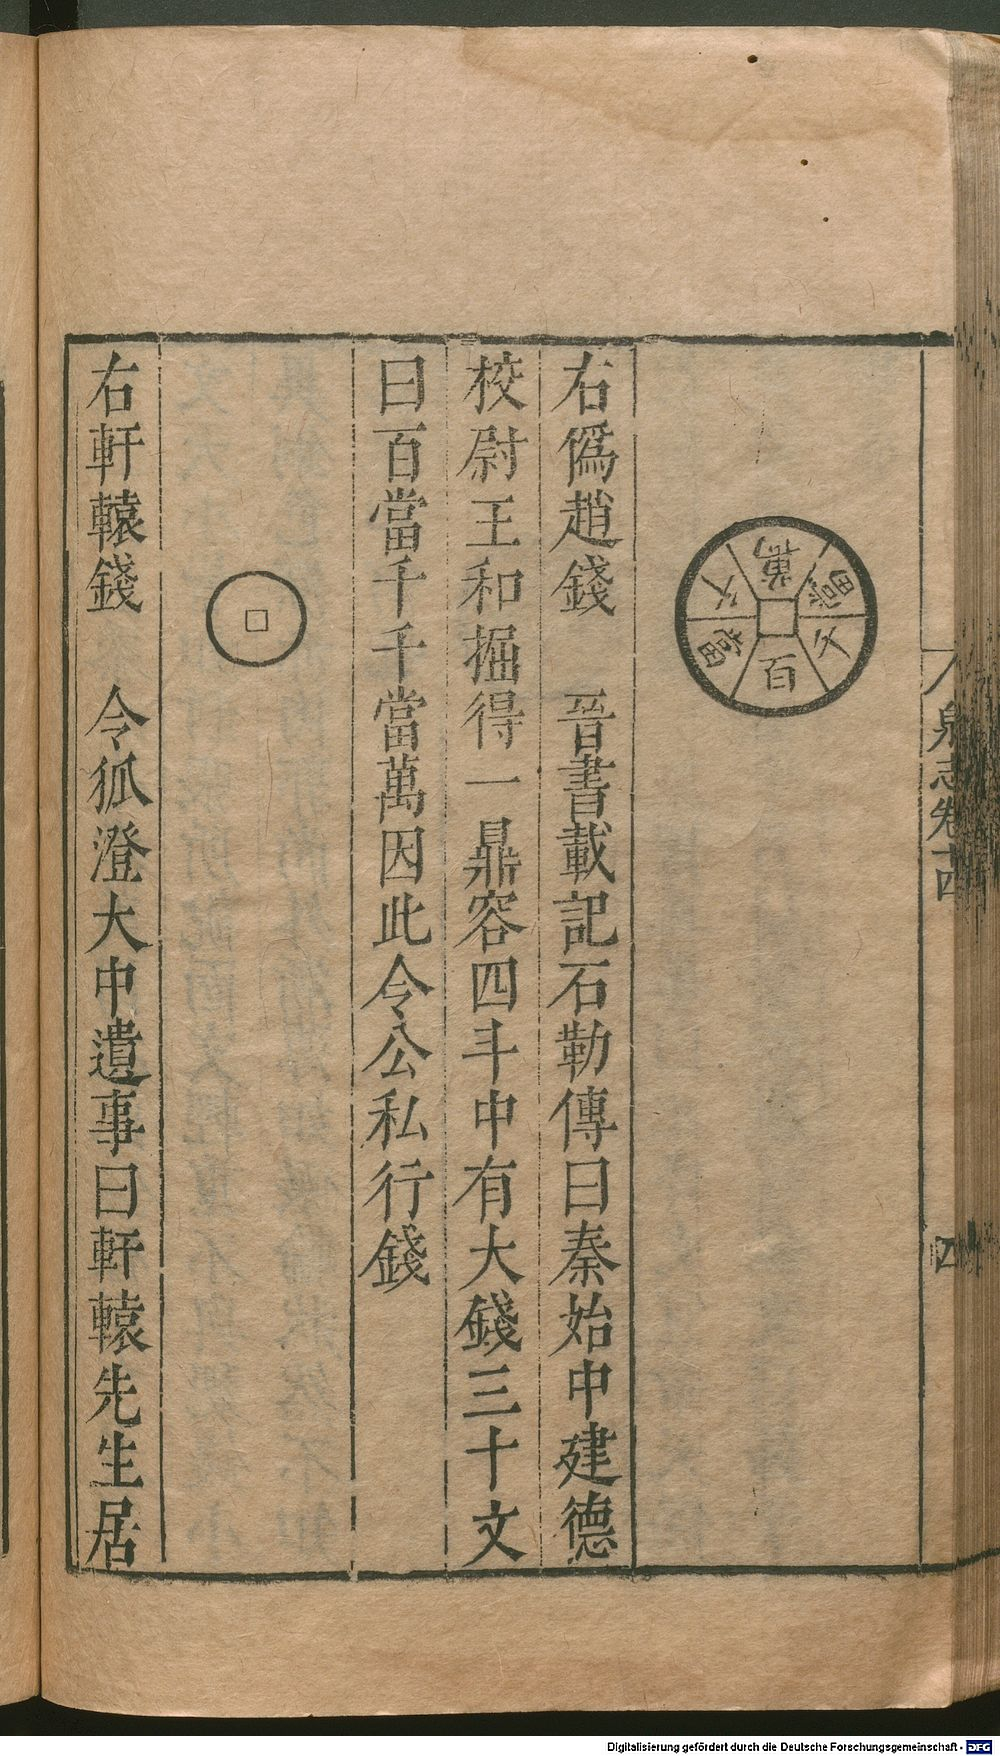 泉志卷十四
四
萬
百
當
文
右僞趙錢　晉書載記石勒傳曰秦始中建德
校尉王和掘得一鼎容四斗中有大錢三十文
曰百當千千當萬因此令公私行錢
右軒轅錢　令狐澄大中遺事曰軒轅先生居
Digitalisierung gefördert durch die Deutsche Forschungsgemeinschaft - DFG